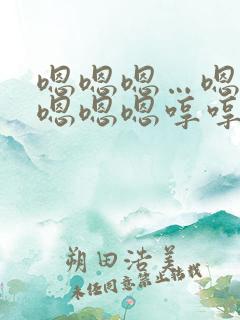 嗯嗯嗯…嗯
嗯嗯嗯哼哼
朔田浩美
未经同意禁止转载